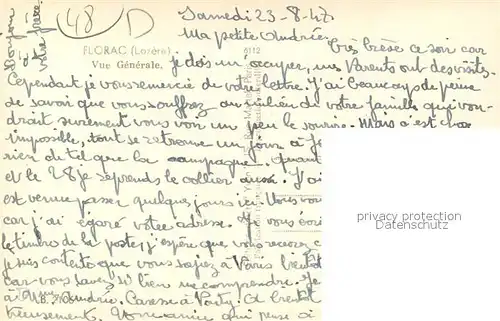 Bonjour
votre frère
48 D
Samedi 23-8-47
Ma petite Andrée
très brève ce soir car
FLORAC (Lozère) 6112
Vue Générale.
je dois m'occuper, mes Parents ont des visites.
Cependant je vous remercie de votre lettre. J'ai beaucoup de peine
de savoir que vous souffrez au milieu de votre famille qui vou-
drait surement vous voir un peu le sourire. Mais c'est chose
impossible, tout se retrouve un jour à
rien de tel que la campagne. Quant
et le 28 je reprends le collier aussi. J'ai
est venue passer quelques jours ici. Vous
car j'ai égaré votre adresse. Je vous
le timbre de la poste, j'espère que vous recevrez
je suis contente que vous soyez à Paris bientôt
car vous savez si bien me comprendre. Je
à Andrée. Caresse à A bientôt
Votre amie qui pense à
privacy protection
Datenschutz